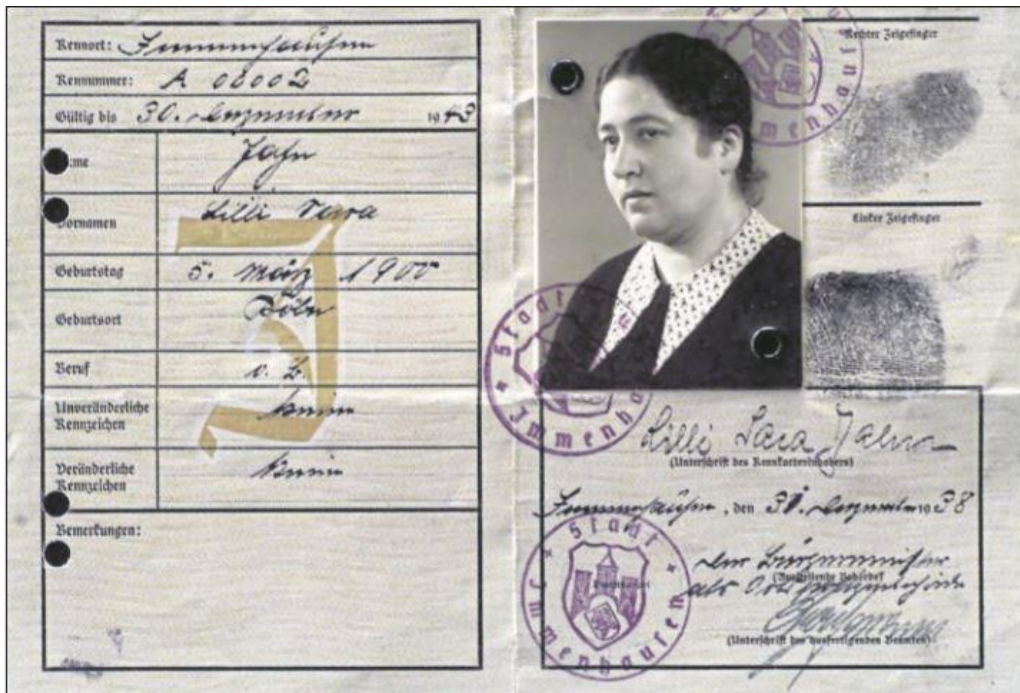 Kennort: Immenhausen
Kennummer: A 00002
Gültig bis 30. Dezember 1943
Name Jahn
Vornamen Lilli Sara
Geburtstag 5. März 1900
Geburtsort Köln
Beruf o. B.
Unveränderliche Kennzeichen keine
Veränderliche Kennzeichen keine
Bemerkungen:
J
Rechter Zeigefinger
Linker Zeigefinger
Stadt Immenhausen
Lilli Sara Jahn
(Unterschrift des Kennkarteninhabers)
Immenhausen, den 30. Dezember 1938
Der Bürgermeister
(Ausstellende Behörde)
als Ortspolizeibehörde
(Unterschrift des ausfertigenden Beamten)
Stadt Immenhausen